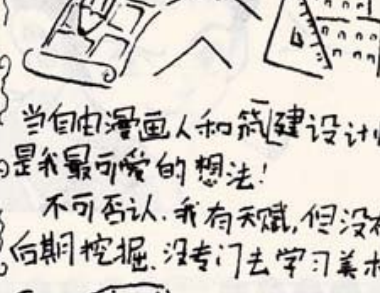 当自由漫画人和筑建设计
是我最可爱的想法!
不可否认,我有天赋,但没
后期挖掘,没专门去学习美